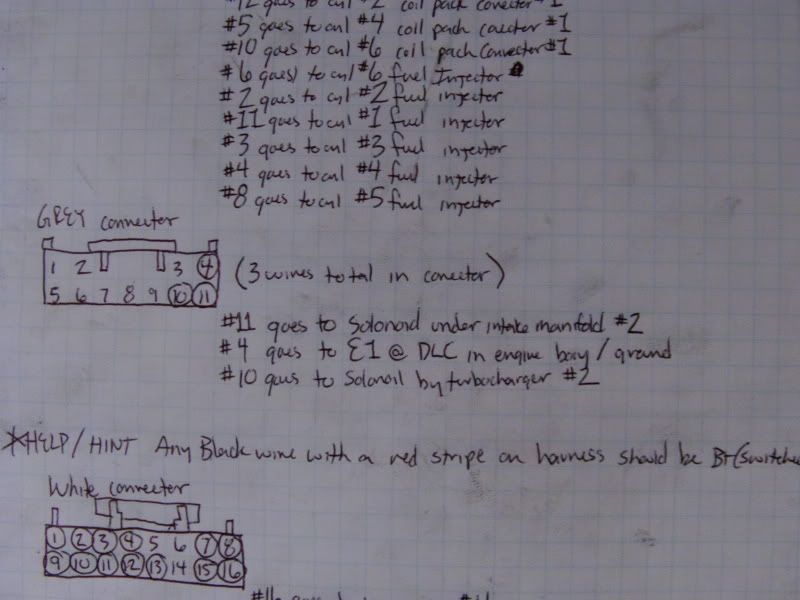 #12 goes to cyl #2 coil pack conector #1
#5 goes to cyl #4 coil pack conector #1
#10 goes to cyl #6 coil pack Connector #1
#6 goes to cyl #6 fuel Injector
#2 goes to cyl #2 fuel injector
#11 goes to cyl #1 fuel injector
#3 goes to cyl #3 fuel injector
#4 goes to cyl #4 fuel injector
#8 goes to cyl #5 fuel injector
GREY connector
1 2 3 4
(3 wires total in conector)
5 6 7 8 9 10 11
#11 goes to Solonoid under intake manifold #2
#4 goes to E1 @ DLC in engine bay / ground
#10 goes to Solonoid by turbocharger #2
*HELP / HINT Any Black wire with a red stripe on harness should be B+ (switche
White connector
1 2 3 4 5 6 7 8
9 10 11 12 13 14 15 16
#16 goes to